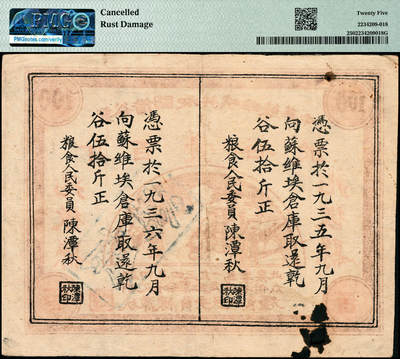 PMG
PMGnotes.com/verify
Cancelled
Rust Damage
Twenty Five
2234209-018
2502234209018G
100
100
憑票於一九三五年九月
向蘇維埃倉庫取還乾
谷伍拾斤正
粮食人民委員 陳潭秋
陳潭秋印
憑票於一九三六年九月
向蘇維埃倉庫取還乾
谷伍拾斤正
粮食人民委員 陳潭秋
陳潭秋印